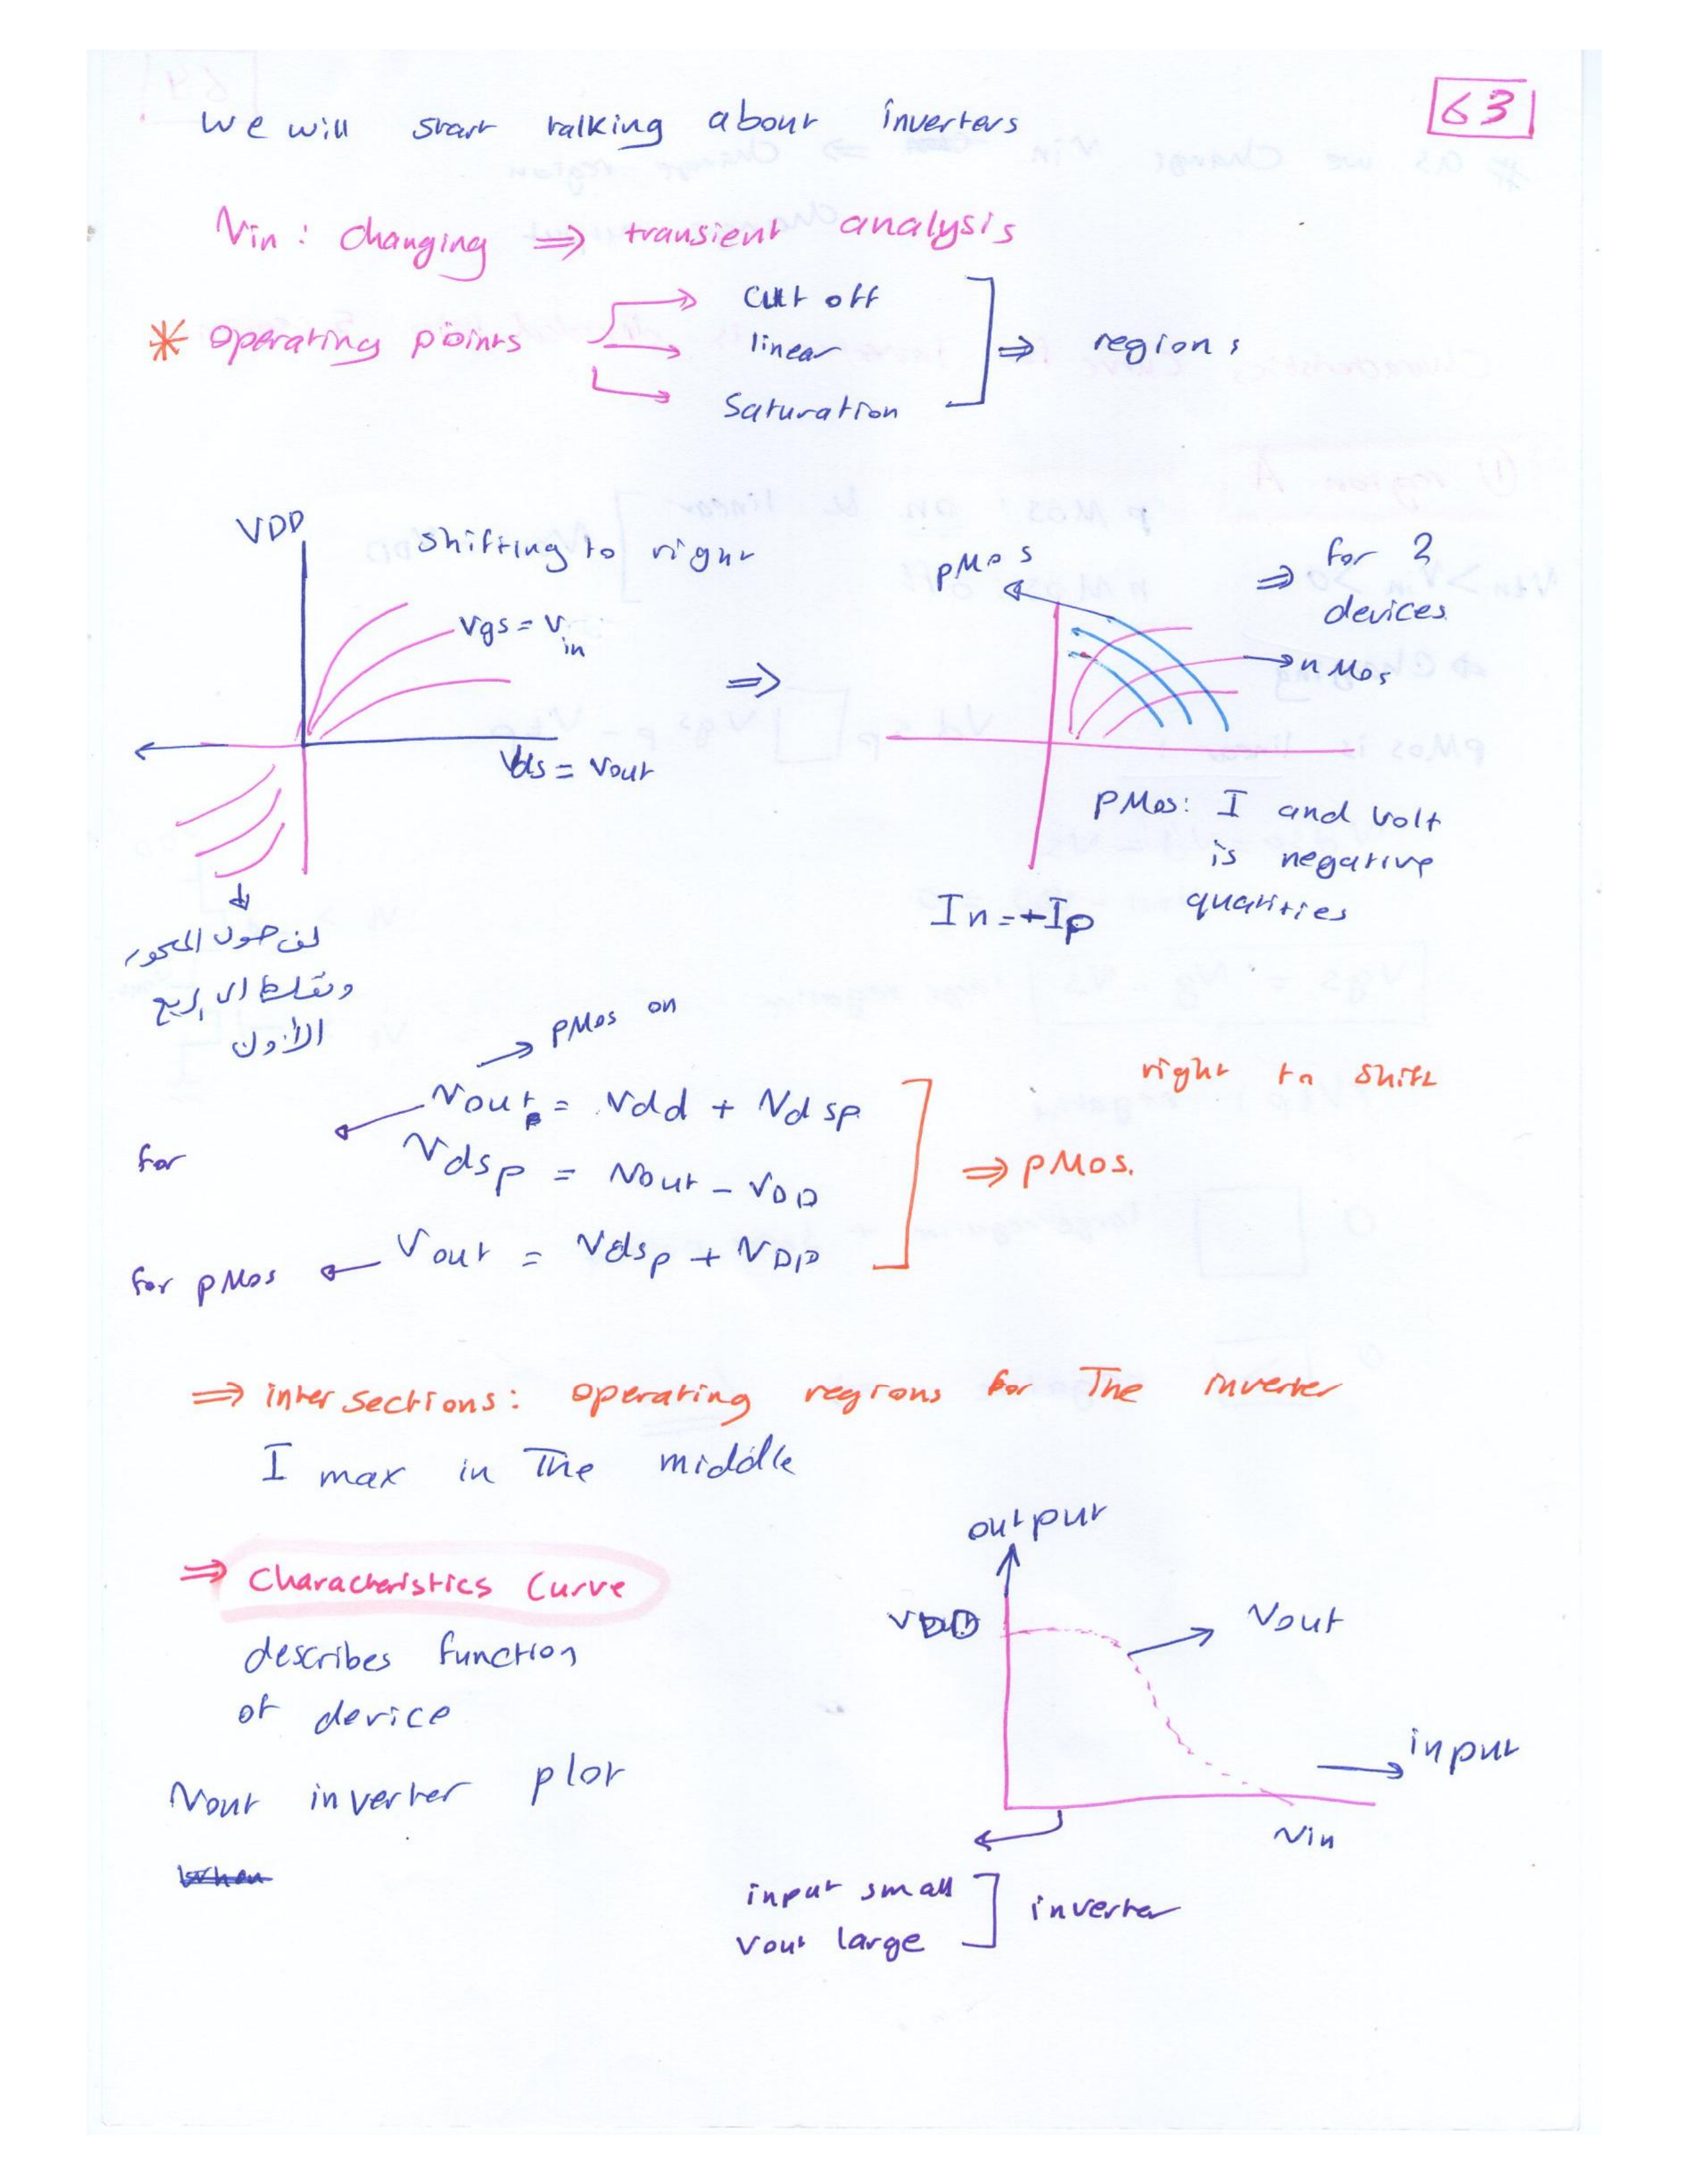 63
we will start talking about inverters
Vin : changing ⇒ transient analysis
* Operating points
cut off
linear
saturation
⇒ regions
VDD
Shifting to right
Vgs = Vin
Vds = Vout
⇒
pMos
⇒ for 2
devices
nMos
pMos: I and Volt
is negative
quantities
In = +Ip
لف حول المحور
الربع
الأول
pMos on
right to shift
Vout = Vdd + Vdsp
for
Vdsp = Vout - VDD
⇒ pMos.
Vout = Vdsp + VDD
for pMos
⇒ intersections: operating regions for The inverter
I max in The middle
⇒ Characteristics Curve
describes function
of device
Vout inverter plot
output
VDD
Vout
input
Vin
input small
Vout large
inverter